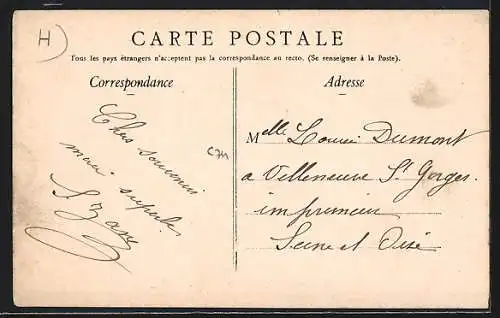 H)
CARTE POSTALE
Tous les pays étrangers n'acceptent pas la correspondance au recto. (Se renseigner à la Poste).
Correspondance
Adresse
souvenir
C74
Melle Louise Dumont
a Villeneuve St Gorges
imprimeur
Seine et Oise